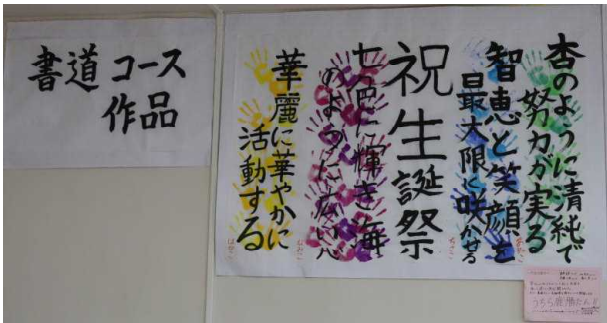 書道 コース
作品
杏のように清純で
努力が実る
智恵と笑顔を
最大限に咲かせる
祝生誕祭
七色に輝き海
のように広い心
華麗に華やかに
活動する